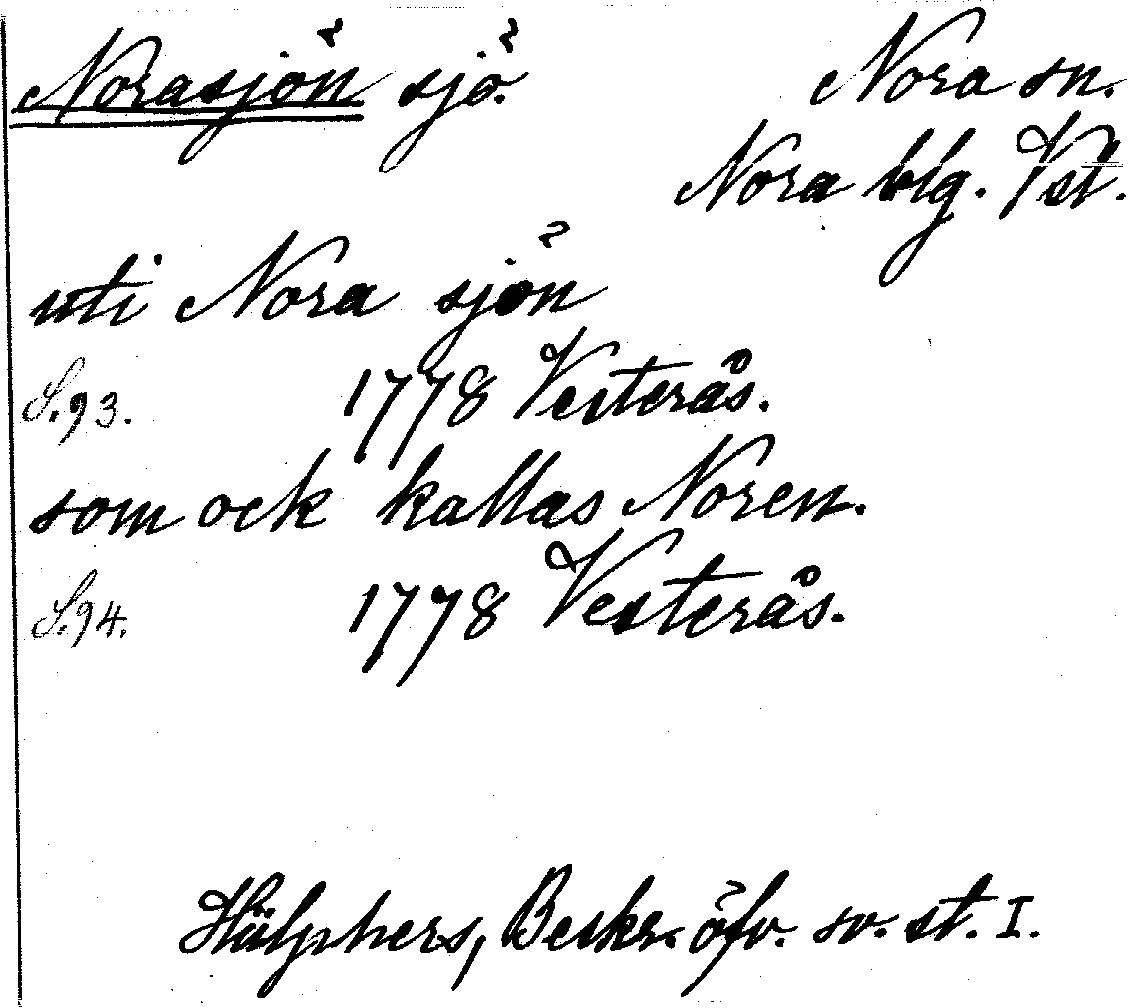 Norasjön sjö. Nora sn.
Nora blg. Vst.
uti Nora sjön
S.93. 1778 Vesterås.
som ock kallas Noren.
S.94. 1778 Vesterås.
Hülphers, Beskr. öfv. sv. st. I.